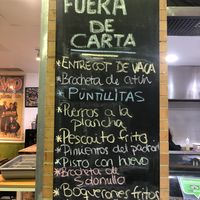 FUERA
DE
CARTA
*ENTRECOT DE VACA
*Brocheta de atún
*PUNTILLITAS
*Puerros a la
plancha
*Pescaito frito
*Pimientos del padrón
*PISTO CON HUEVO
*Brocheta de
Solomillo
*Boquerones fritos